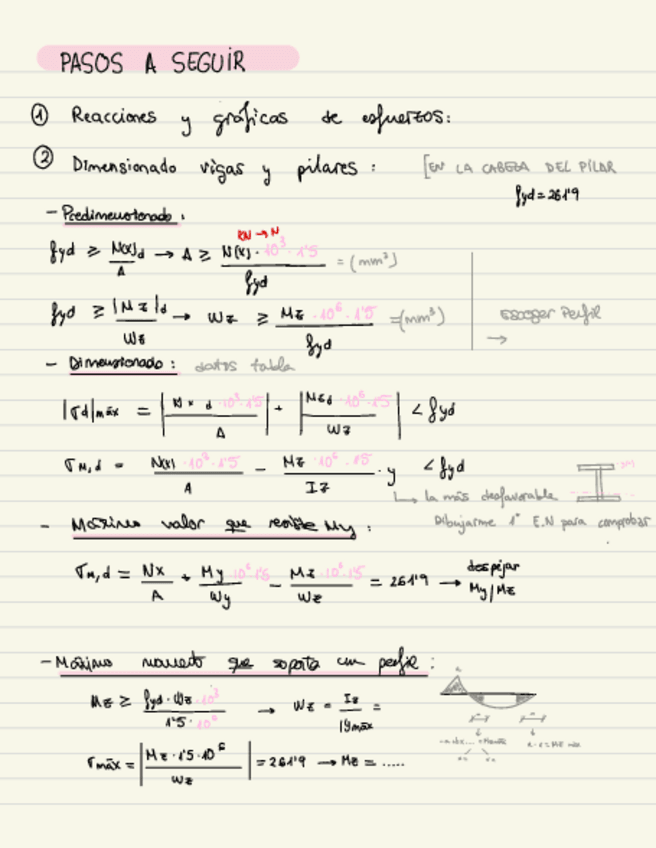 PASOS A SEGUIR
① Reacciones y gráficas de esfuerzos:
② Dimensionado vigas y pilares : [EN LA CABEZA DEL PILAR
fyd = 261'9
- Predimensionado :
KN → N
fyd ≥ N(x)d / A → A ≥ N(x) · 10³ · 1'5 / fyd = (mm²)
fyd ≥ |Mz|d / Wz → Wz ≥ Mz · 10⁶ · 1'5 / fyd = (mm³)
escoger Perfil →
- Dimensionado : datos tabla
|σd|máx = |Nx d · 10³ · 1'5 / A| + |Mzd · 10⁶ · 1'5 / Wz| < fyd
σM,d = N(x) · 10³ · 1'5 / A - Mz · 10⁶ · 1'5 / Iz · y < fyd
↳ la más desfavorable
Dibujarme 1º E.N para comprobar
- Máximo valor que resiste My :
σM,d = Nx / A + My · 10⁶ · 1'5 / Wy - Mz · 10⁶ · 1'5 / Wz = 261'9 → despejar My/Mz
- Máximo momento que soporta un perfil :
Mz ≥ fyd · Wz · 10³ / 1'5 · 10⁶ → Wz = Iz / |y|máx =
σmáx = |Mz · 1'5 · 10⁶ / Wz| = 261'9 → Mz = .....